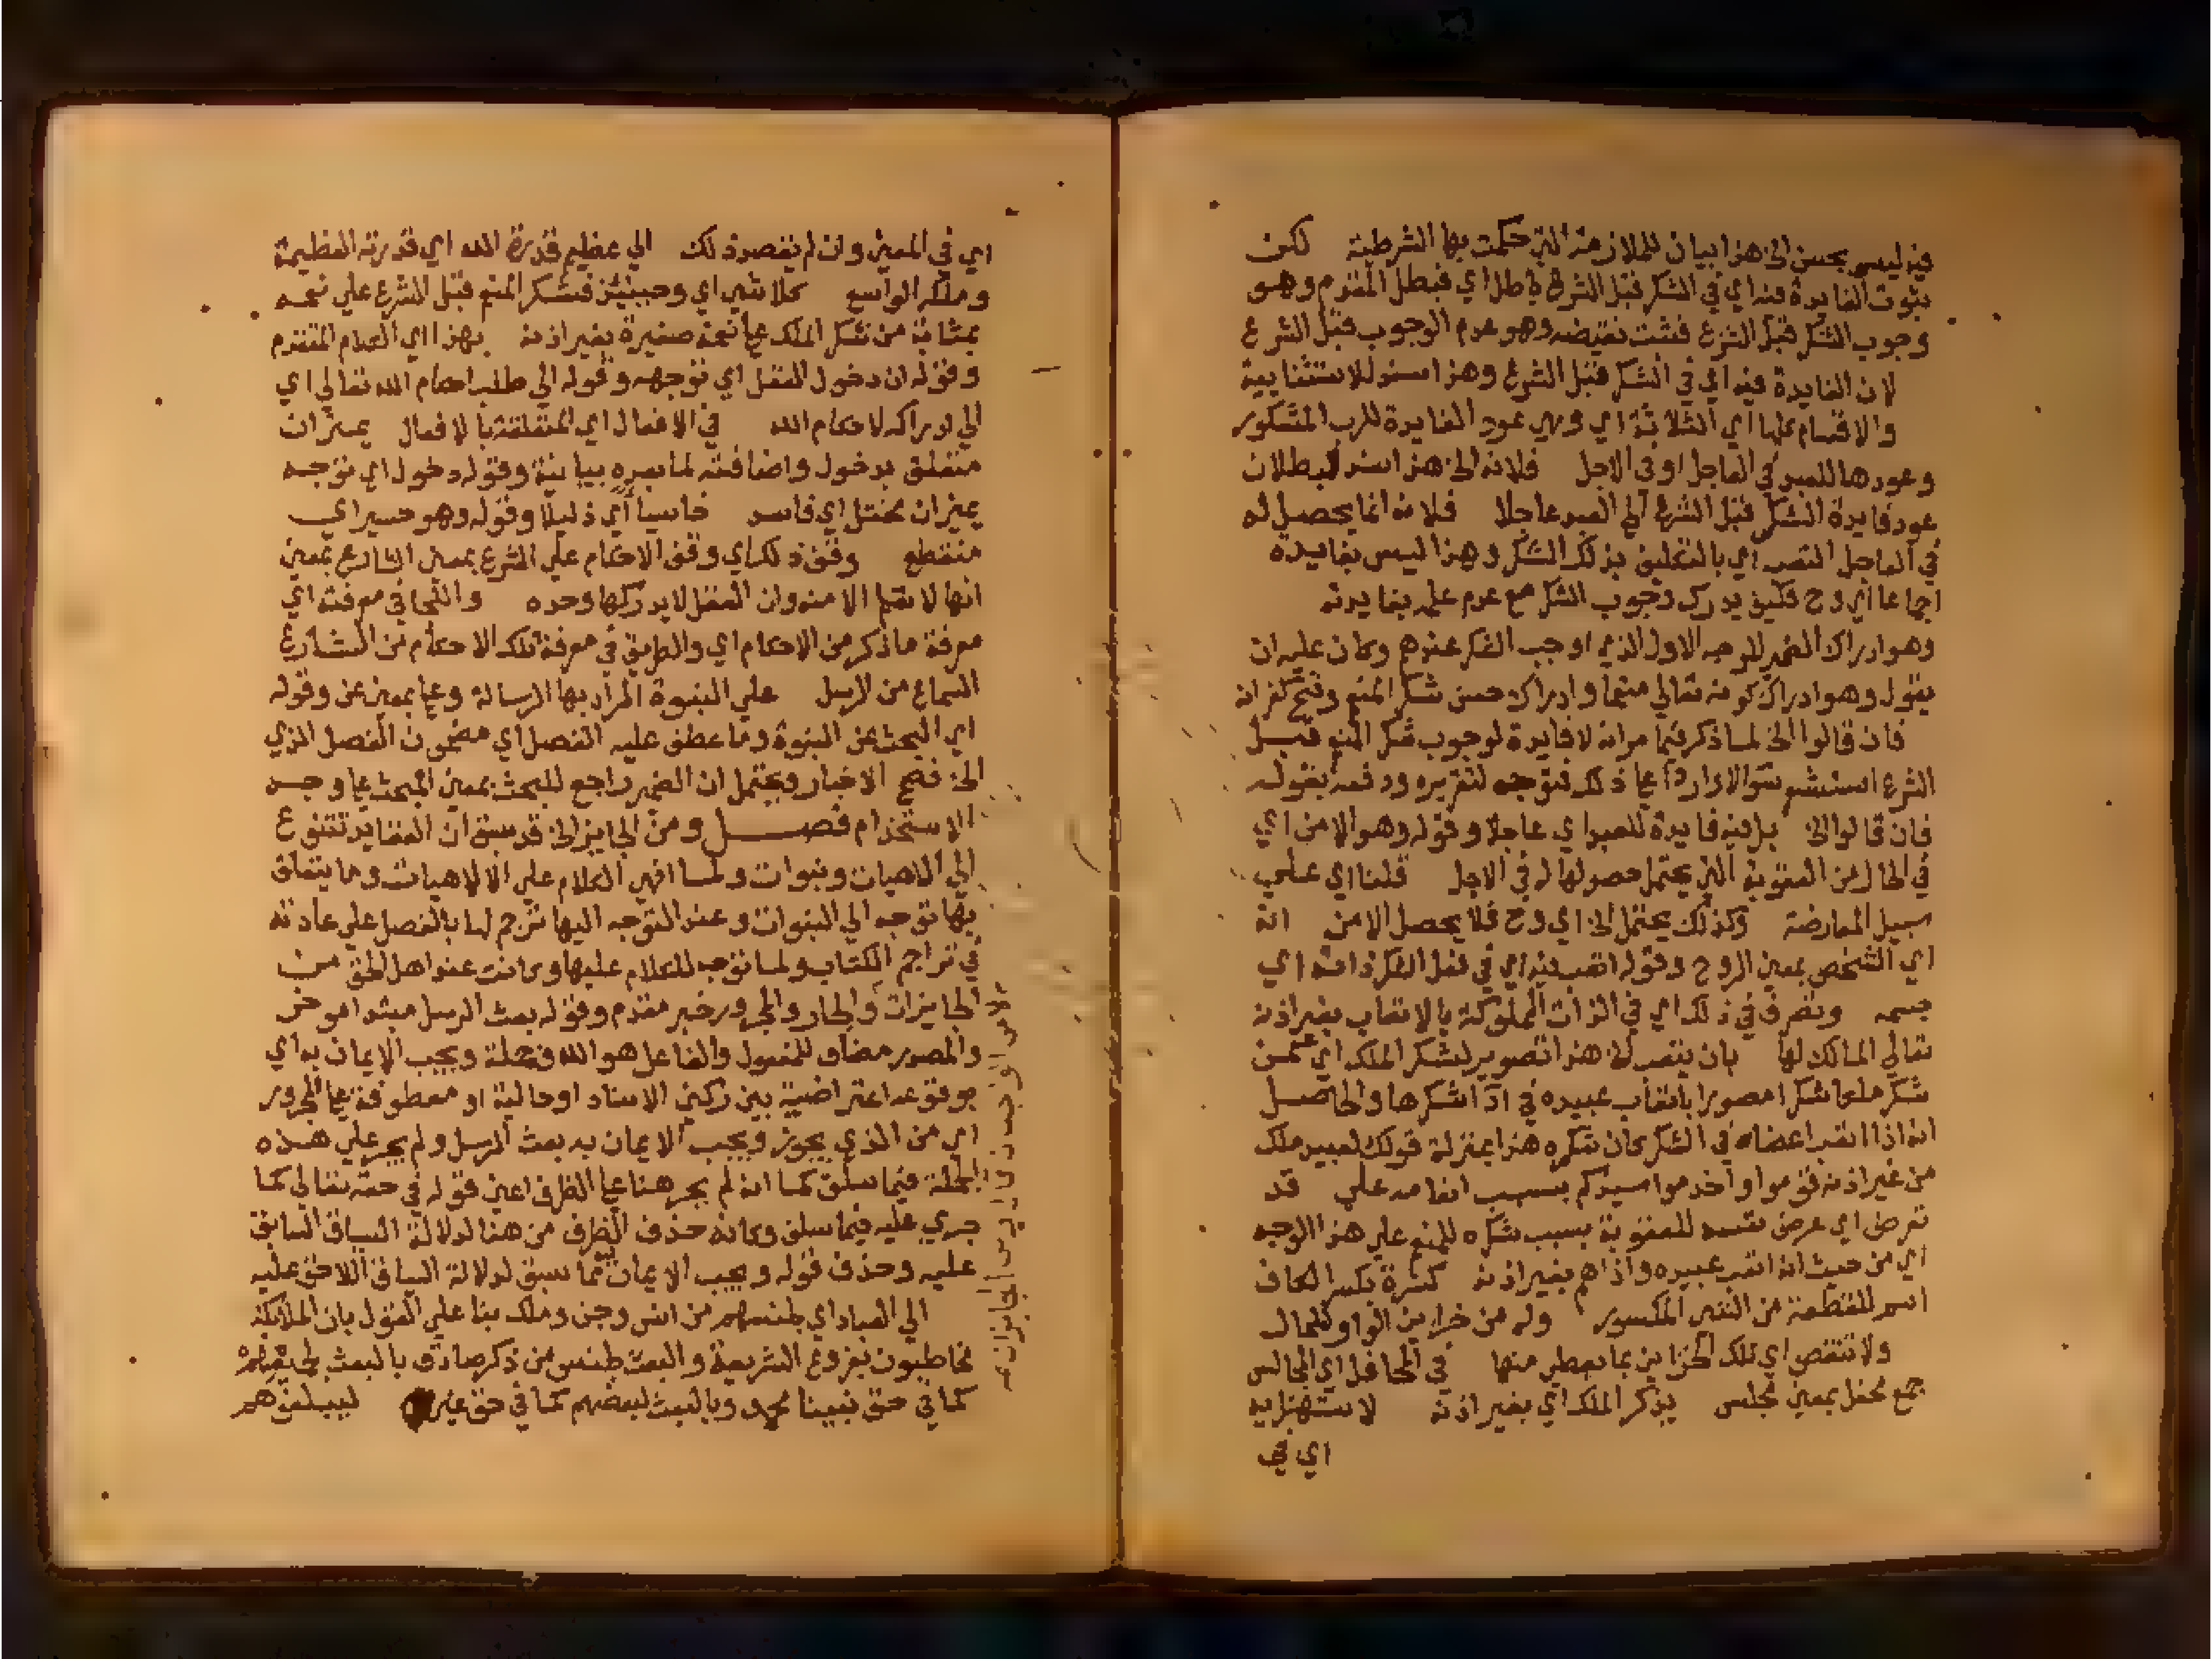 فيه ليس بحسن الخ هذا بيان للملازمة التي حكمت بها الشرطية لكن
ثبوت الفايدة فيه اي في الشكر قبل الشرع باطل اي فبطل المقدم وهو
وجوب الشكر قبل الشرع فثبت نقيضه وهو عدم الوجوب قبل الشرع
لان الفايدة فيه اي في الشكر قبل الشرع وهذا سند للاستثنايية
والاقسام كلها اي الثلاثة اي وهي عود الفايدة للرب المشكور
وعودها للعبد في العاجل او في الاجل فلانه الخ هذا سند لبطلان
عود فايدة الشكر قبل الشرع الي العبد عاجلا فلانه انما يحصل له
في العاجل التعب اي بالتكليف بذلك الشكر وهذا ليس بفايدة
اجماعا اي وح فكيف يدرك وجوب الشكر مع عدم علمه بفايدته
وهو ادراك الضمير للوجه الاول الذي اوجب الشكر عندهم وكان عليه ان
يقول وهو ادراك كونه تعالي منعما وادراك حسن شكر المنعم وقبح كفرانه
فان قالوا الخ لما ذكر فيما مر انه لا فايدة لوجوب شكر المنعم قبل
الشرع استشعر سوالا واردا علي ذلك فتوجه لتقريره ودفعه بقوله
فان قالوا الخ بل فيه فايدة للعبد اي عاجلا وقوله وهو الامن اي
في الحال من العقوبة التي يحتمل حصولها له في الاجل قلنا اي علي
سبيل المعارضة وكذلك يحتمل الخ اي وح فلا يحصل الامن انه
اي الشخص بمعني الروح وقوله اتعب فيه اي في فعل الشكر ذاته اي
جسمه وتصرف في ذلك اي في الذات المملوكة بالاتعاب بغير اذنه
تعالي المالك لها بان يتعب الخ هذا تصوير لشكر الملك اي كمن
شكر ملكا شكرا مصورا باتعاب عبيده في اداء شكرها والحاصل
انه اذا اتعب اعضاه في الشكر كان شكره هذا بمنزلة قولك لعبيد ملك
من غير اذنه قوموا واخدموا سيدكم بسبب انعامه علي قد
تعرض اي عرض نفسه للعقوبة بسبب شكره للمنعم علي هذا الوجه
اي من حيث انه اتعب عبيده واذاهم بغير اذنه كسرة بكسر الكاف
اسم للقطعة من الشي المكسور وله من خزاين الواو للحال
ولا تنقص اي تلك الخزاين بما يعطي منها في المحافل اي المجالس
جمع محفل بمعني مجلس يذكر الملك اي بغير اذنه لاستهزايه
اي في
اي في المعني وان لم يقصد ذلك الي عظيم قدرة الله اي قدرته العظيمة
وملكه الواسع كلا شي اي وحينيذ فشكر المنعم قبل الشرع علي نعمه
بمثابة من شكر الملك علي نعمة صغيرة بغير اذنه بهذا اي الكلام المتقدم
وقوله ان دخول العقل اي توجهه وقوله الي طلب احكام الله تعالي اي
الي ادراكه لاحكام الله في الافعال اي المتعلقة بالافعال بميزان
متعلق بدخول واضافته لما بعده بيانية وقوله دخول اي توجه
بميزان مختل اي فاسد خاسيا اي ذليلا وقوله وهو حسير اي
منقطع وقف ذلك اي وقف الاحكام علي الشرع بمعني الشارع بمعني
انها لا تعلم الا منه وان العقل لا يدركها وحده والنجا في معرفته اي
معرفة ما ذكر من الاحكام اي والطريق في معرفة تلك الاحكام من الشارع
السماع من الرسل علي النبوة المراد بها الرسالة وعلي بمعني عن وقوله
اي البحث عن النبوة وما عطف عليه الفصل اي مضمون الفصل الذي
الخ فصح الاخبار ويحتمل ان الضمير راجع للبحث بمعني المبحث علي وجه
الاستخدام فصل ومن الجايز الخ قد سبق ان العقايد تتنوع
الي الاهيات ونبوات ولما انهي الكلام علي الالاهيات وما يتعلق
بها توجه الي النبوات وعند التوجه اليها ترجم لها بالفصل علي عادته
في تراجم الكتاب ولما توجه للكلام عليها وكانت عند اهل الحق من
الجايزات والجار والمجرور خبر مقدم وقوله بعث الرسل مبتدا موخر
والمصدر مضاف للمفعول والفاعل هو الله فجملة ويجب الايمان به اي
بوقوعه اعتراضية بين ركني الاسناد او حالية او معطوفة علي المجرور
اي من الذي يجوز ويجب الايمان به بعث الرسل ولم يجر علي هذه
الجملة فيما سلف كما انه لم يجر هنا علي الظرف اعني قوله في حقه تعالي كما
جري عليه فيما سلف وكانه حذف الظرف من هنا لدلالة السياق السابق
عليه وحذف قوله ويجب الايمان مما سبق لدلالة السياق اللاحق عليه
الي العباد اي لجنسهم من انس وجن وملك بنا علي القول بان الملائكة
مخاطبون بفروع الشريعة والبعث لجنس من ذكر صادق بالبعث لجميعهم
كما في حق نبينا محمد وبالبعث لبعضهم كما في حق غيره ليبلغوهم